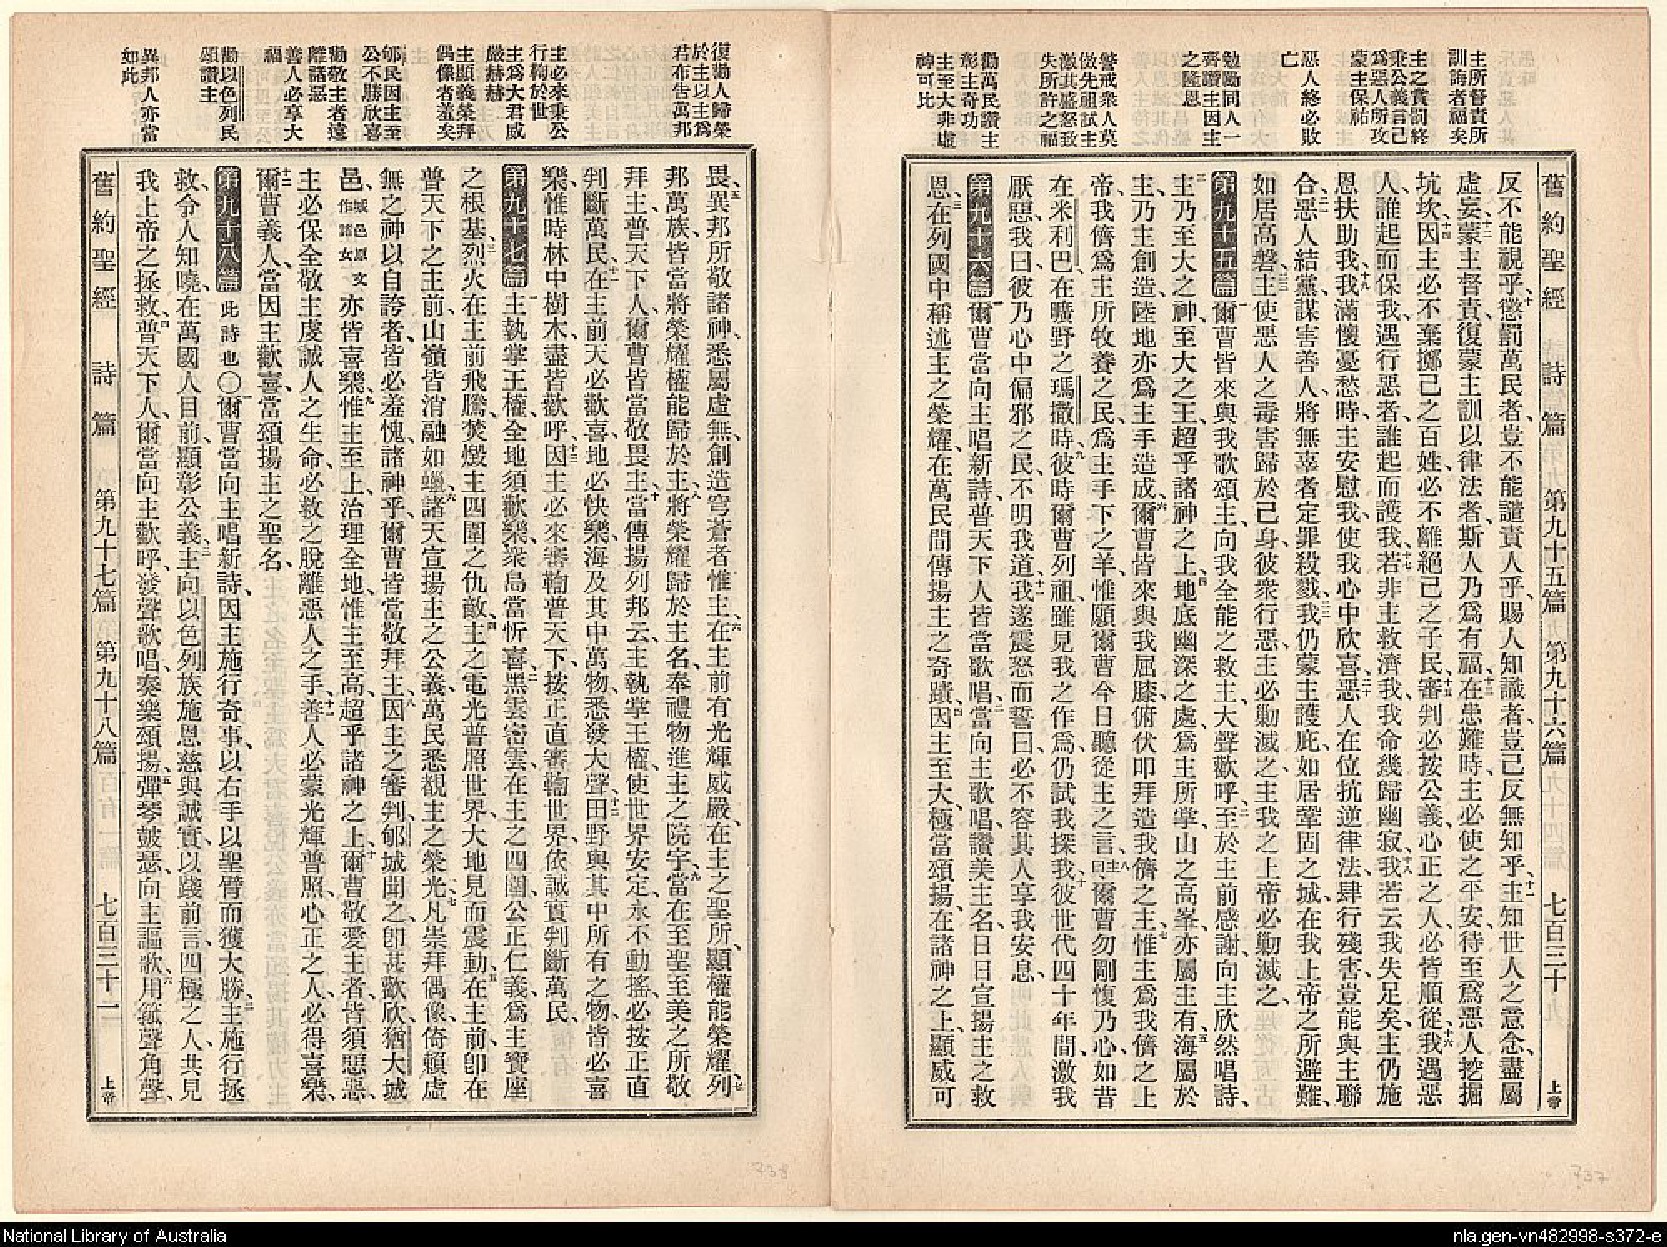 舊約聖經 詩篇 第九十五篇 第九十六篇 七百三十 上帝
主所督責所
訓誨者福矣
主之賞罰終
秉公義言己
為惡人所攻
蒙主保祐
惡人終必敗
亡
勉勵同人一
齊讚主因主
之隆恩
警戒眾人莫
倣先祖試主
激其盛怒致
失所許之福
勸萬民讚主
彰主奇功
主至大非虛
神可比
反不能視乎、十懲罰萬民者、豈不能譴責人乎、賜人知識者、豈己反無知乎、十一主知世人之意念、盡屬
虛妄、十二蒙主督責、復蒙主訓以律法者、斯人乃為有福、十三在患難時、主必使之平安、待至為惡人挖掘
坑坎、十四因主必不棄擲己之百姓、必不離絕己之子民、十五審判必按公義、心正之人、必皆順從、十六我遇惡
人、誰起而保我、遇行惡者、誰起而護我、十七若非主救濟我、我命幾歸幽寂、十八我若云我失足矣、主仍施
恩扶助我、十九我滿懷憂愁時、主安慰我、使我心中欣喜、二十惡人在位、抗逆律法、肆行殘害、豈能與主聯
合、二一惡人結黨、謀害善人、將無辜者定罪殺戮、二二我仍蒙主護庇、如居鞏固之城、在我上帝之所避難、
如居高磐、二三主使惡人之毒害歸於己身、彼眾行惡、主必勦滅之、主我之上帝必勦滅之、
第九十五篇 一爾曹皆來與我歌頌主、向我全能之救主、大聲歡呼、二至於主前感謝、向主欣然唱詩、
三主乃至大之神、至大之王、超乎諸神之上、四地底幽深之處、為主所掌、山之高峯、亦屬主有、五海屬於
主、乃主創造、陸地亦為主手造成、六爾曹皆來與我屈膝俯伏、叩拜造我儕之主、七惟主為我儕之上
帝、我儕為主所牧養之民、為主手下之羊、惟願爾曹今日聽從主之言、八主曰爾曹勿剛愎乃心、如昔
在米利巴、在曠野之瑪撒時、九彼時爾曹列祖、雖見我之作為、仍試我探我、十彼世代四十年間、激我
厭惡、我曰、彼乃心中偏邪之民、不明我道、十一我遂震怒而誓曰、必不容其人享我安息、
第九十六篇 一爾曹當向主唱新詩、普天下人皆當歌唱、二當向主歌唱、讚美主名、日日宣揚主之救
恩、三在列國中稱述主之榮耀、在萬民間傳揚主之奇蹟、四因主至大、極當頌揚、在諸神之上、顯威可
復勸人歸榮
於主以主為
君布告萬邦
主必來秉公
行鞫於世
主為大君威
嚴赫赫
主顯義榮拜
偶像者羞矣
郇民因主至
公不勝欣喜
勸敬主者遠
離諸惡
善人必享大
福
勸以色列民
頌讚主
異邦人亦當
如此
畏、五異邦所敬諸神、悉屬虛無、創造穹蒼者惟主、六在主前有光輝威嚴、在主之聖所、顯權能榮耀、七列
邦萬族、皆當將榮耀權能歸於主、八將榮耀歸於主名、奉禮物進主之院宇、九當在至聖至美之所敬
拜主、普天下人、爾曹皆當敬畏主、十當傳揚列邦云、主執掌王權、使世界安定、永不動搖、必按正直
判斷萬民、十一在主前天必歡喜、地必快樂、海及其中萬物、悉發大聲、十二田野與其中所有之物、皆必喜
樂、惟時林中樹木、盡皆歡呼、十三因主必來審鞫普天下、按正直審鞫世界、依誠實判斷萬民、
第九十七篇 一主執掌王權、全地須歡樂、衆島當忻喜、二黑雲密雲、在主之四圍、公正仁義、為主寶座
之根基、三烈火在主前飛騰、焚燬主四圍之仇敵、四主之電光普照世界、大地見而震動、五在主前、卽在
普天下之主前、山嶺皆消融如蠟、六諸天宣揚主之公義、萬民悉覩主之榮光、七凡崇拜偶像、倚賴虛
無之神以自誇者、皆必羞愧、諸神乎、爾曹皆當敬拜主、八因主之審判、郇城聞之、卽甚歡欣、猶大城
邑、城邑原文作諸女亦皆喜樂、九惟主至上、治理全地、惟主至高、超乎諸神之上、十爾曹敬愛主者、皆須惡惡、
主必保全敬主虔誠人之生命、必救之脫離惡人之手、十一善人必蒙光輝普照、心正之人、必得喜樂、
十二爾曹義人、當因主歡喜、當頌揚主之聖名、
第九十八篇 此詩也〇一爾曹當向主唱新詩、因主施行奇事、以右手以聖臂而獲大勝、二主施行拯
救、令人知曉、在萬國人目前、顯彰公義、三主向以色列族施恩慈與誠實、以踐前言、四極之人、共見
我上帝之拯救、四普天下人、爾當向主歡呼、發聲歌唱、奏樂頌揚、五彈琴鼓瑟、向主謳歌、六用號聲角聲、
舊約聖經 詩篇 第九十七篇 第九十八篇 七百三十一 上帝
338
337
National Library of Australia
nla.gen-vn482998-s372-e